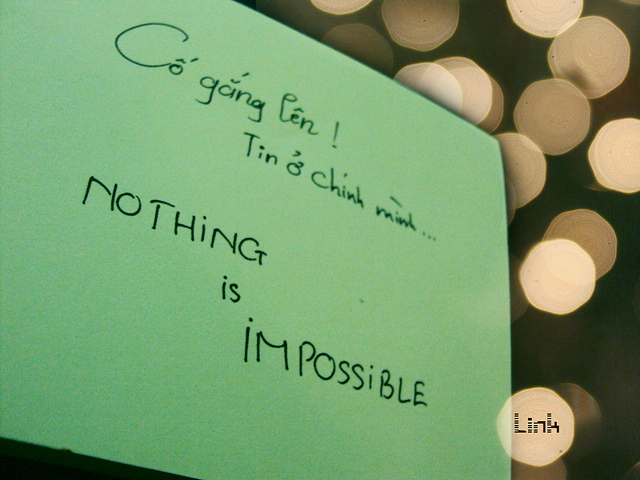 Cố gắng lên !
Tin ở chính mình...
NOTHiNG
is
iMPOSSiBLE
Link